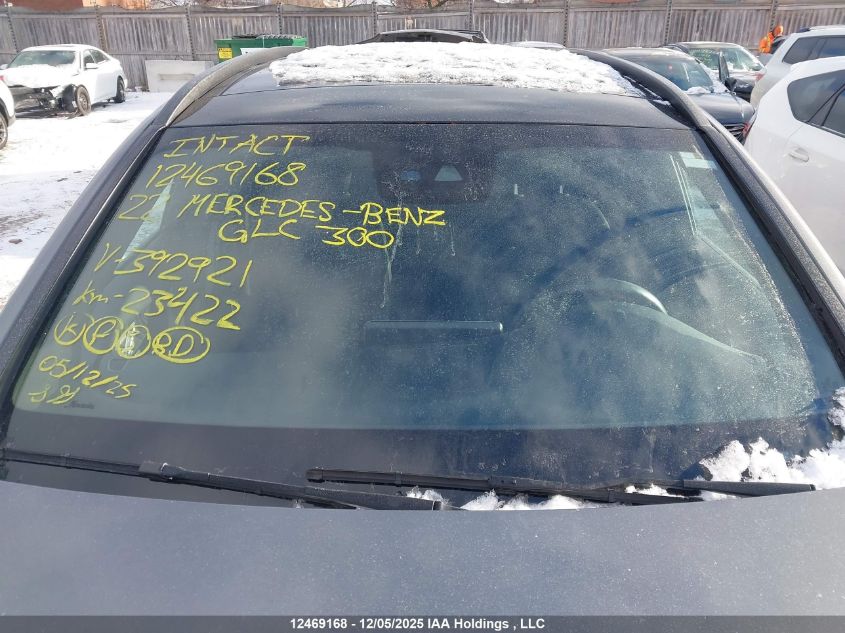 INTACT
12469168
22 MERCEDES-BENZ
GLC 300
V-392921
km-23422
K P E BD
05/12/25
12469168 - 12/05/2025 IAA Holdings , LLC